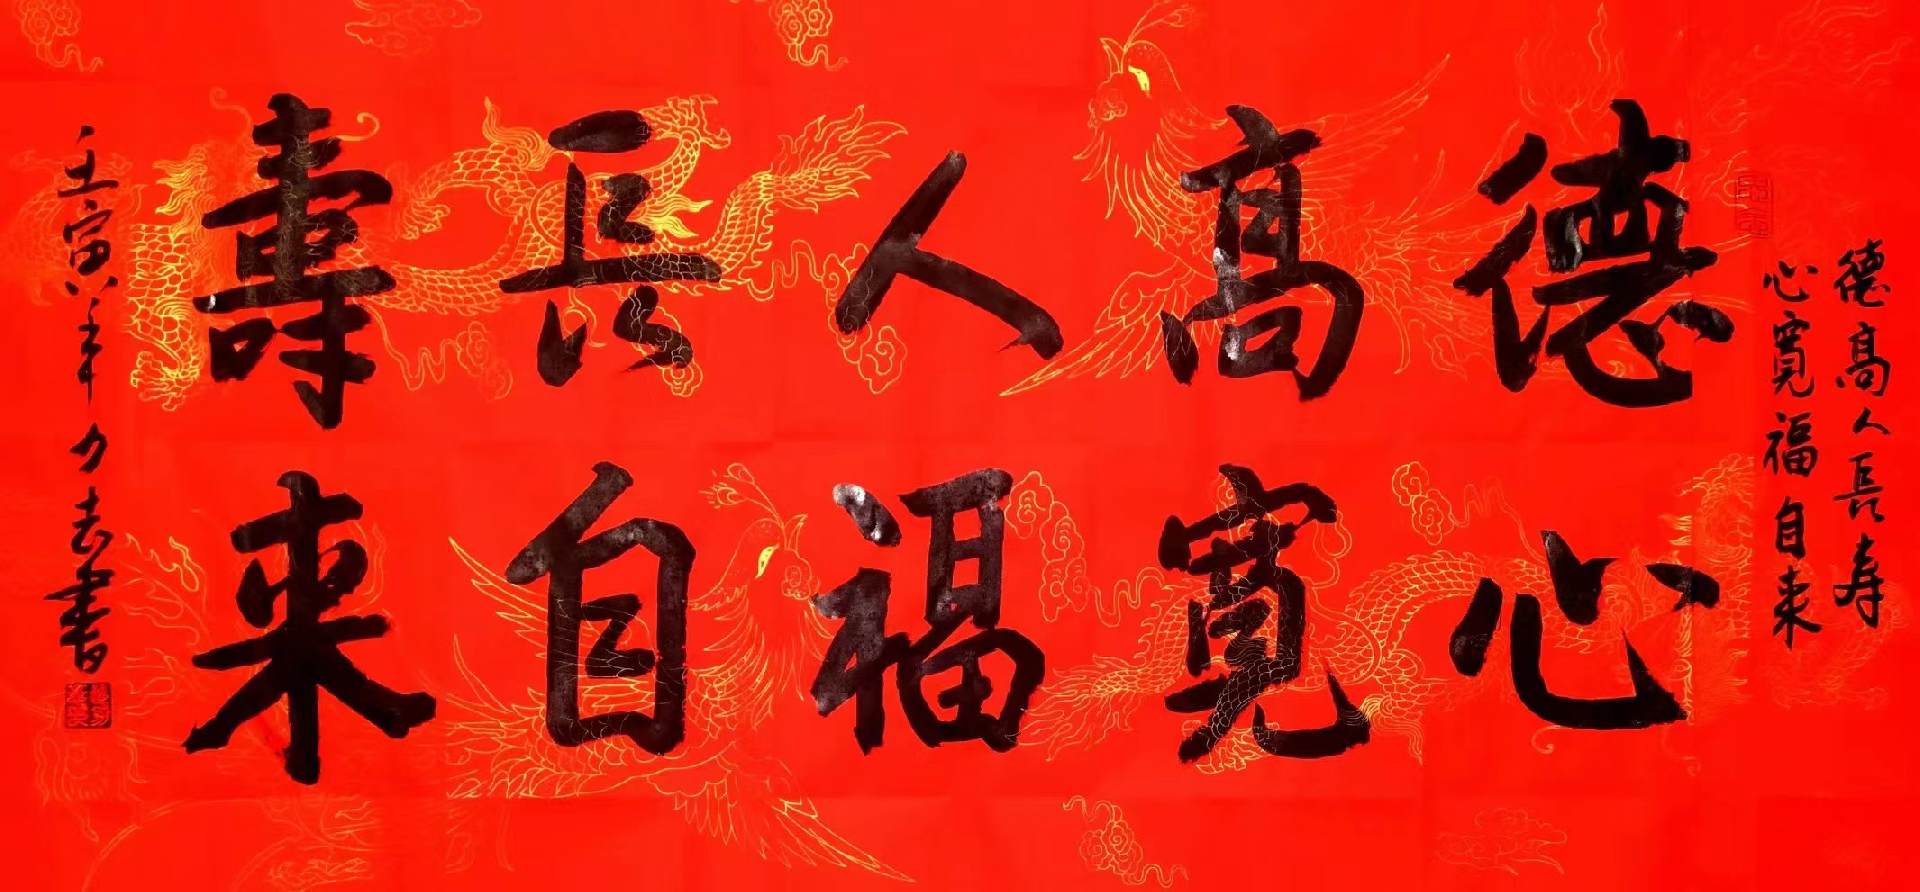 德高人長寿
心寬福自来
德高人長壽
心寬福自来
壬寅年力去書